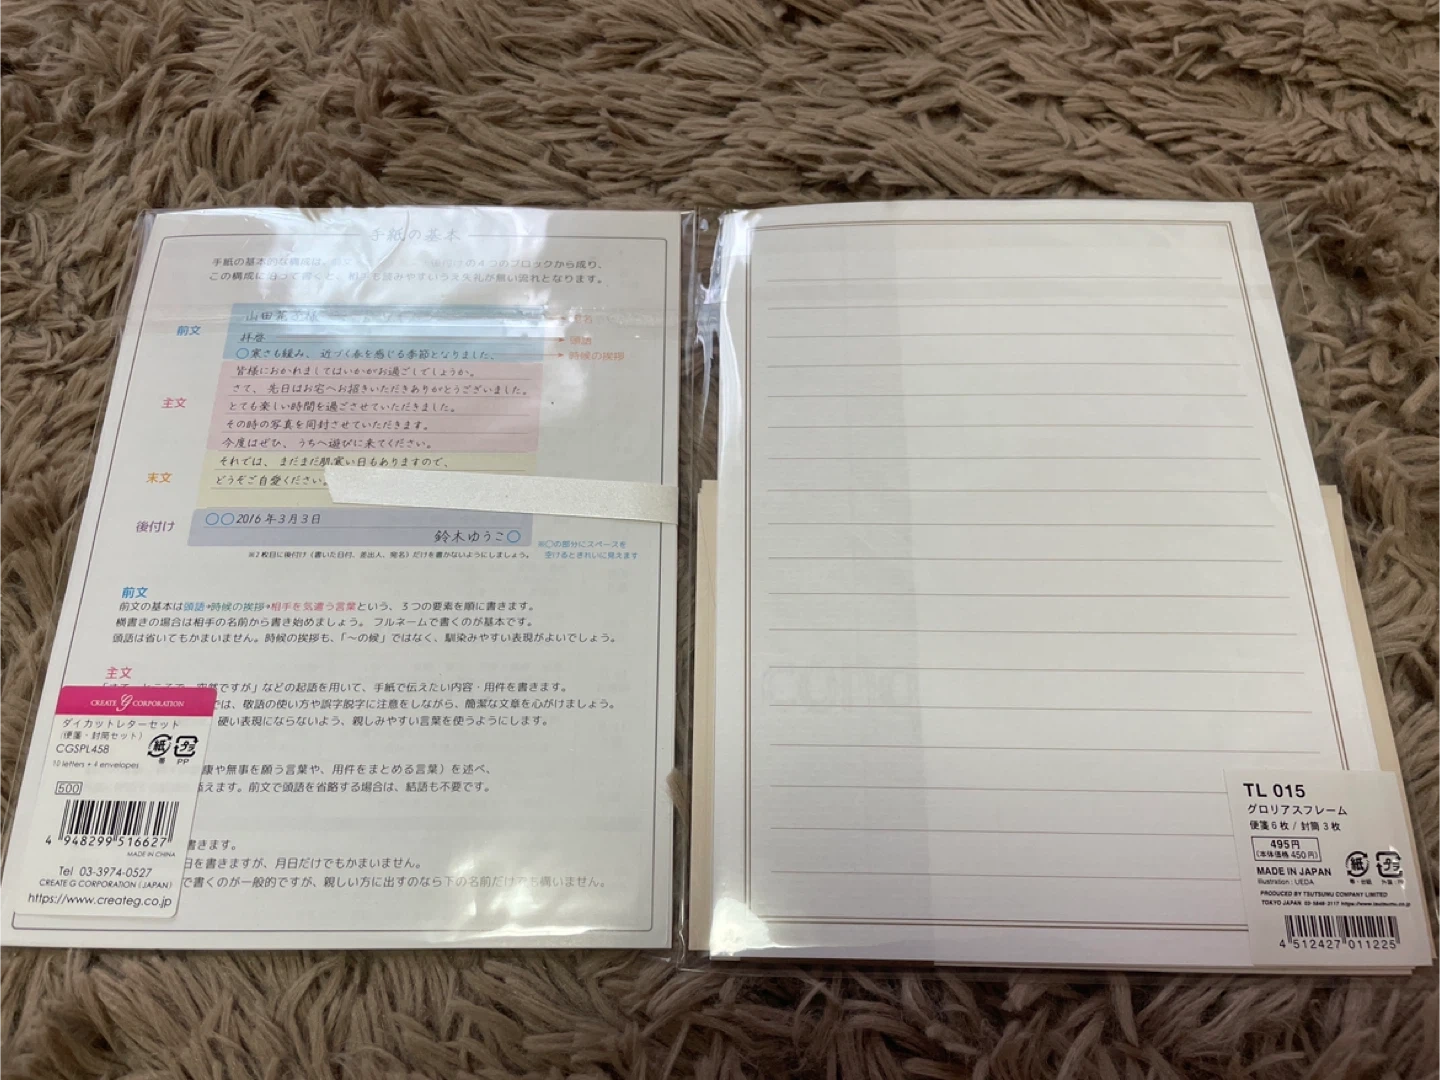 手紙の基本
手紙の基本的な構成は、前文 後付けの４つのブロックから成り、
この構成に沿って書くと、相手も読みやすいうえ失礼が無い流れとなります。
前文
山田花子様
拝啓
頭語
〇寒さも緩み、近づく春を感じる季節となりました、
時候の挨拶
皆様におかれましてはいかがお過ごしでしょうか。
主文
さて、先日はお宅へお招きいただきありがとうございました。
とても楽しい時間を過ごさせていただきました。
その時の写真を同封させていただきます。
今度はぜひ、うちへ遊びに来てください。
末文
それでは、まだまだ肌寒い日もありますので、
どうぞご自愛ください。
後付け
〇〇2016年3月3日
鈴木ゆうこ〇
※〇の部分にスペースを
空けるときれいに見えます
※2枚目に後付け（書いた日付、差出人、宛名）だけを書かないようにしましょう。
前文
前文の基本は頭語→時候の挨拶→相手を気遣う言葉という、３つの要素を順に書きます。
横書きの場合は相手の名前から書き始めましょう。フルネームで書くのが基本です。
頭語は省いてもかまいません。時候の挨拶も、「〜の候」ではなく、馴染みやすい表現がよいでしょう。
主文
ですが」などの起語を用いて、手紙で伝えたい内容・用件を書きます。
では、敬語の使い方や誤字脱字に注意をしながら、簡潔な文章を心がけましょう。
硬い表現にならないよう、親しみやすい言葉を使うようにします。
康や無事を願う言葉や、用件をまとめる言葉）を述べ、
添えます。前文で頭語を省略する場合は、結語も不要です。
書きます。
日を書きますが、月日だけでもかまいません。
で書くのが一般的ですが、親しい方に出すのなら下の名前だけでも構いません。
CREATE G CORPORATION
ダイカットレターセット
（便箋・封筒セット）
CGSPL458
10 letters + 4 envelopes
紙
帯
プラ
PP
500
4 948299 516627
MADE IN CHINA
Tel 03-3974-0527
CREATE G CORPORATION (JAPAN)
https://www.createg.co.jp
TL 015
グロリアスフレーム
便箋6枚 / 封筒3枚
495円
（本体価格 450円）
MADE IN JAPAN
Illustration : UEDA
紙
帯・台紙
プラ
PRODUCED BY TSUTSUMU COMPANY LIMITED
TOKYO JAPAN 03-5848-2117 https://www.tsutsumu.co.jp
4 512427 011225